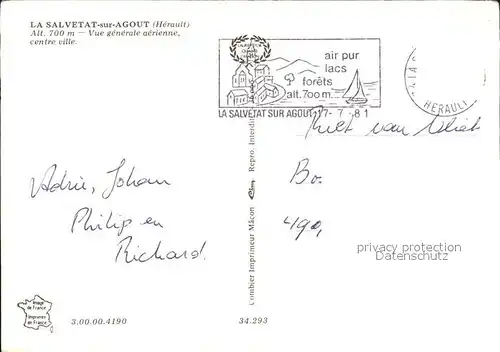 LA SALVETAT-sur-AGOUT (Hérault)
Alt. 700 m — Vue générale aérienne,
centre ville.
air pur
lacs
forêts
alt. 700 m.
LA SALVETAT SUR AGOUT 17- 7 - 81
HERAULT
van Vliet
Bo.
490,
Adrie, Johan
Philip en
Richard.
Combier Imprimeur Mâcon Repro. Interdite
privacy protection
Datenschutz
Image
de France
Imprimée
en France
3.00.00.4190
34.293